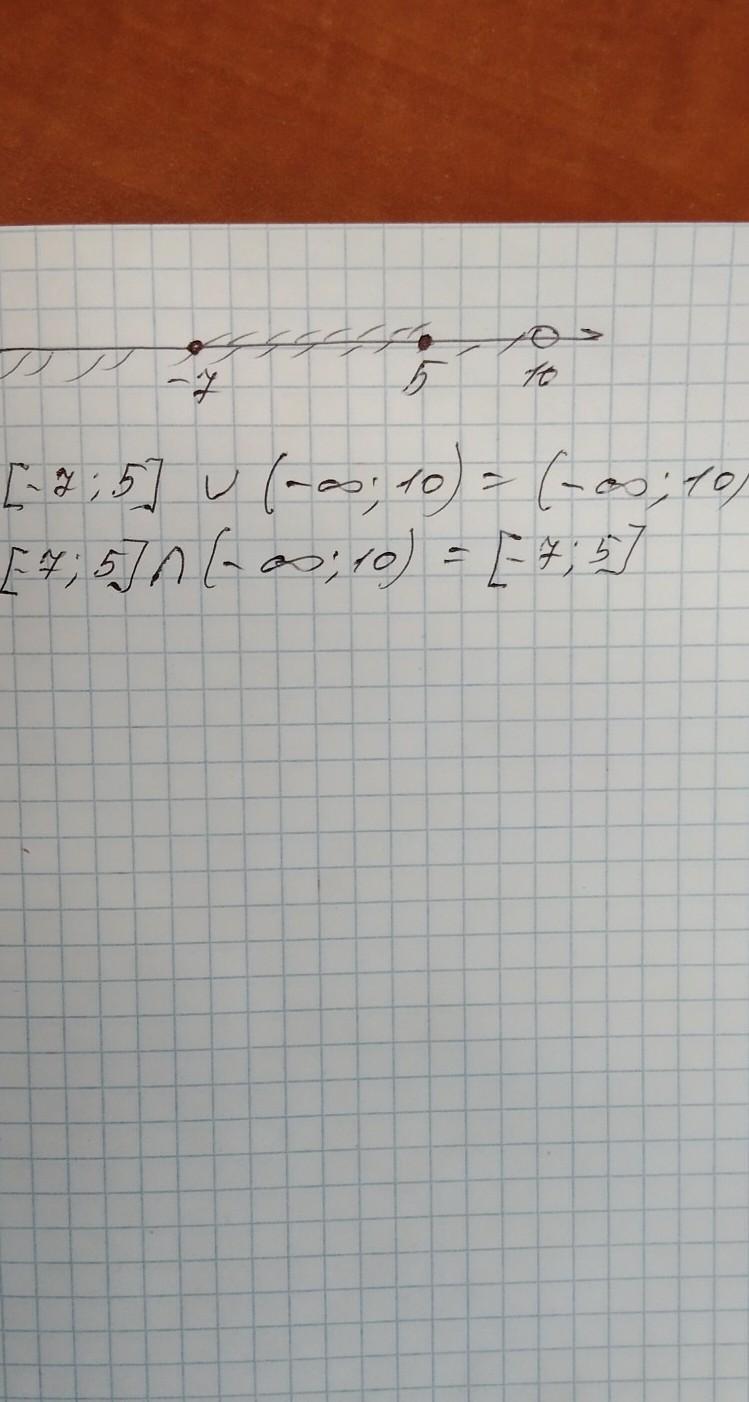 -7 5 10
[-7; 5] ∪ (-∞; 10) = (-∞; 10)
[-7; 5] ∩ (-∞; 10) = [-7; 5]